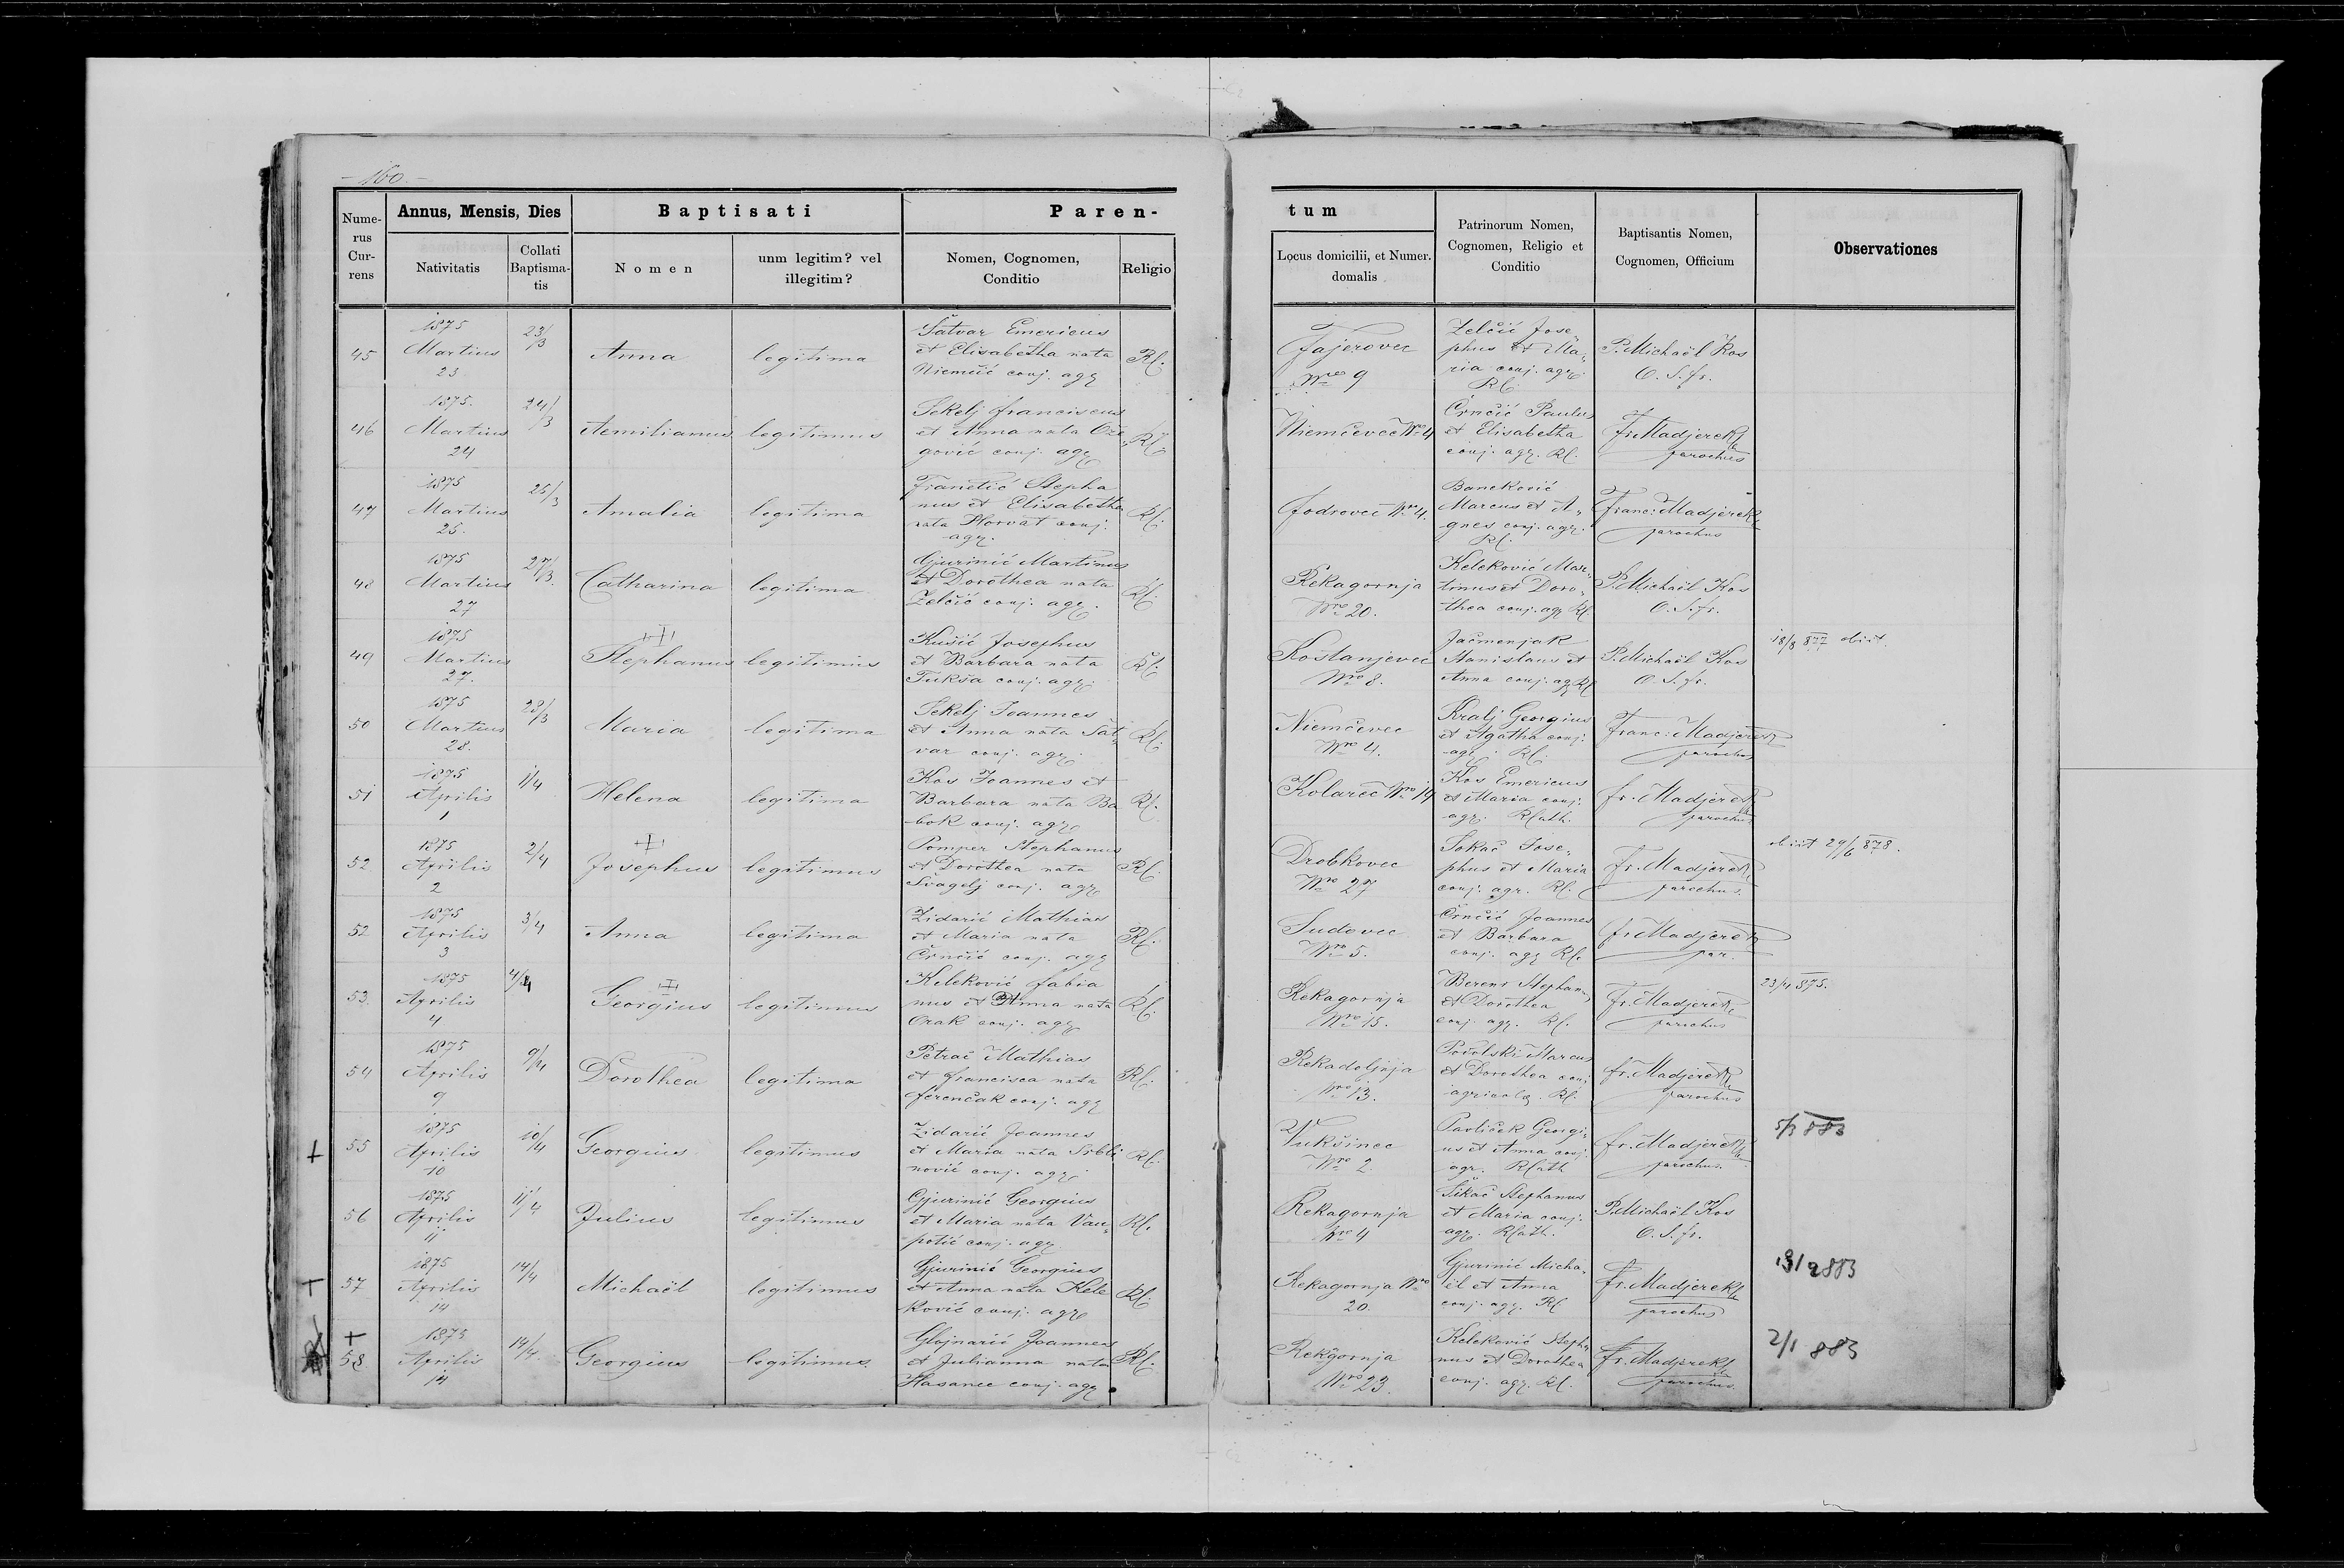 - 160. -
Nume-
rus
Cur-
rens
Annus, Mensis, Dies
Nativitatis
Collati
Baptisma-
tis
Baptisati
Nomen
unm legitim? vel
illegitim?
Paren-
Nomen, Cognomen,
Conditio
Religio
tum
Locus domicilii, et Numer.
domalis
Patrinorum Nomen,
Cognomen, Religio et
Conditio
Baptisantis Nomen,
Cognomen, Officium
Observationes
45
1875
Martius
23
23/3
Anna
legitima
Šatvar Emericus
et Elisabetha nata
Niemčić conj. agr
RC.
Fajerovec
Nro 9
Zelčić Jose
phus et Ma„
ria conj. agr.
RC.
P. Michaël Kos
O. S. fr.
46
1875.
Martius
24
24/3
Aemilianus
legitimus
Sekelj franciscus
et Anna nata Ože„
gović conj. agr
RC.
Niemčevec Nro 4
Črnčić Paulus
et Elisabetha
conj. agr. RC.
Fr. Madjerek
parochus
47
1875
Martius
25.
25/3
Amalia
legitima
Franetić Stepha
nus et Elisabetha
nata Horvat conj.
agr.
RC.
fodrovec Nro 4.
Baneković
Marcus et A„
gnes conj. agr.
RC.
Franc: Madjerek
parochus
48
1875
Martius
27
27/3.
Catharina
legitima
Gjurinić Martinus
et Dorothea nata
Zelčić conj. agr.
RC.
Rekagornja
Nro 20.
Keleković Mar„
tinus et Doro„
thea conj. agr RC.
P. Michaël Kos
O. S. fr.
49
1875
Martius
27.
Stephanus
legitimus
Kušić Josephus
et Barbara nata
Tukša conj. agr.
RC.
Kostanjevec
Nro 8.
Jačmenjak
Stanislaus et
Anna conj. agr RC
P. Michaël Kos
O. S. fr.
18/8 877 obiit.
50
1875
Martius
28.
28/3
Maria
legitima
Sekelj Joannes
et Anna nata Šat„
var conj. agr.
RC.
Niemčevec
Nro 4.
Kralj Georgius
et Agatha conj.
agr. RC.
Franc: Madjerek
parochus
51
1875
Aprilis
1
1/4
Helena
legitima
Kos Joannes et
Barbara nata Ba
bok conj. agr
RC.
Kolarec Nro 19
Kos Emericus
et Maria conj.
agr. RCath.
fr. Madjerek
parochus
52
1875
Aprilis
2
2/4
Josephus
legitimus
Pomper Stephanus
et Dorothea nata
Švagelj conj. agr
RC.
Drobkovec
Nro 27
Sokač Jose„
phus et Maria
conj. agr. RC.
Fr. Madjerek
parochus.
obiit 29/6 878.
52
1875
Aprilis
3
3/4
Anna
legitima
Zidarić Mathias
et Maria nata
Črnčić conj. agr
RC.
Sudovec
Nro 5.
Črnčić Joannes
et Barbara
conj. agr RC.
fr. Madjerek
par.
53.
1875
Aprilis
4
Georgius
legitimus
Keleković fabia
nus et Anna nata
Orak conj. agr
RC.
Rekagornja
Nro 15.
Berent Stephanus
et Dorothea
conj. agr. RC.
Fr. Madjerek
parochus
23/4 875.
54
1875
Aprilis
9
9/4
Dorothea
legitima
Petrač Mathias
et francisca nata
ferenčak conj. agr
RC.
Rekadoljnja
Nro 13.
Podolski Marcus
et Dorothea conj
agricolæ. RC.
fr. Madjerek
parochus
+
55
1875
Aprilis
10
10/4
Georgius
legitimus
Zidarić Joannes
et Maria nata Srbli
nović conj. agr.
RC.
Vukšinec
Nro 2
Pavliček Georgi„
us et Anna conj.
agr. RCath
fr. Madjerek
parochus.
5/3 883
56
1875
Aprilis
11
11/4
Julius
legitimus
Gjurinić Georgius
et Maria nata Vau„
potić conj. agr
RC.
Rekagornja
Nro 4
Šikač Stephanus
et Maria conj.
agr. RCath.
P. Michaël Kos
O. S. fr.
+
57
1875
Aprilis
14
14/4
Michaël
legitimus
Gjurinić Georgius
et Anna nata Kele
ković conj. agr
RC.
Rekagornja Nro
20.
Gjurinić Micha„
ël et Anna
conj. agr. RC
fr. Madjerek
parochus
+
58
1875
Aprilis
14
14/4.
Georgius
legitimus
Glojnarić Joannes
et Julianna nata
Hasanec conj. agr
RC.
Rekagornja
Nro 23.
Keleković Steph„
nus et Dorothea
conj. agr. RC.
Fr. Madjerek
parochus.
2/1 883